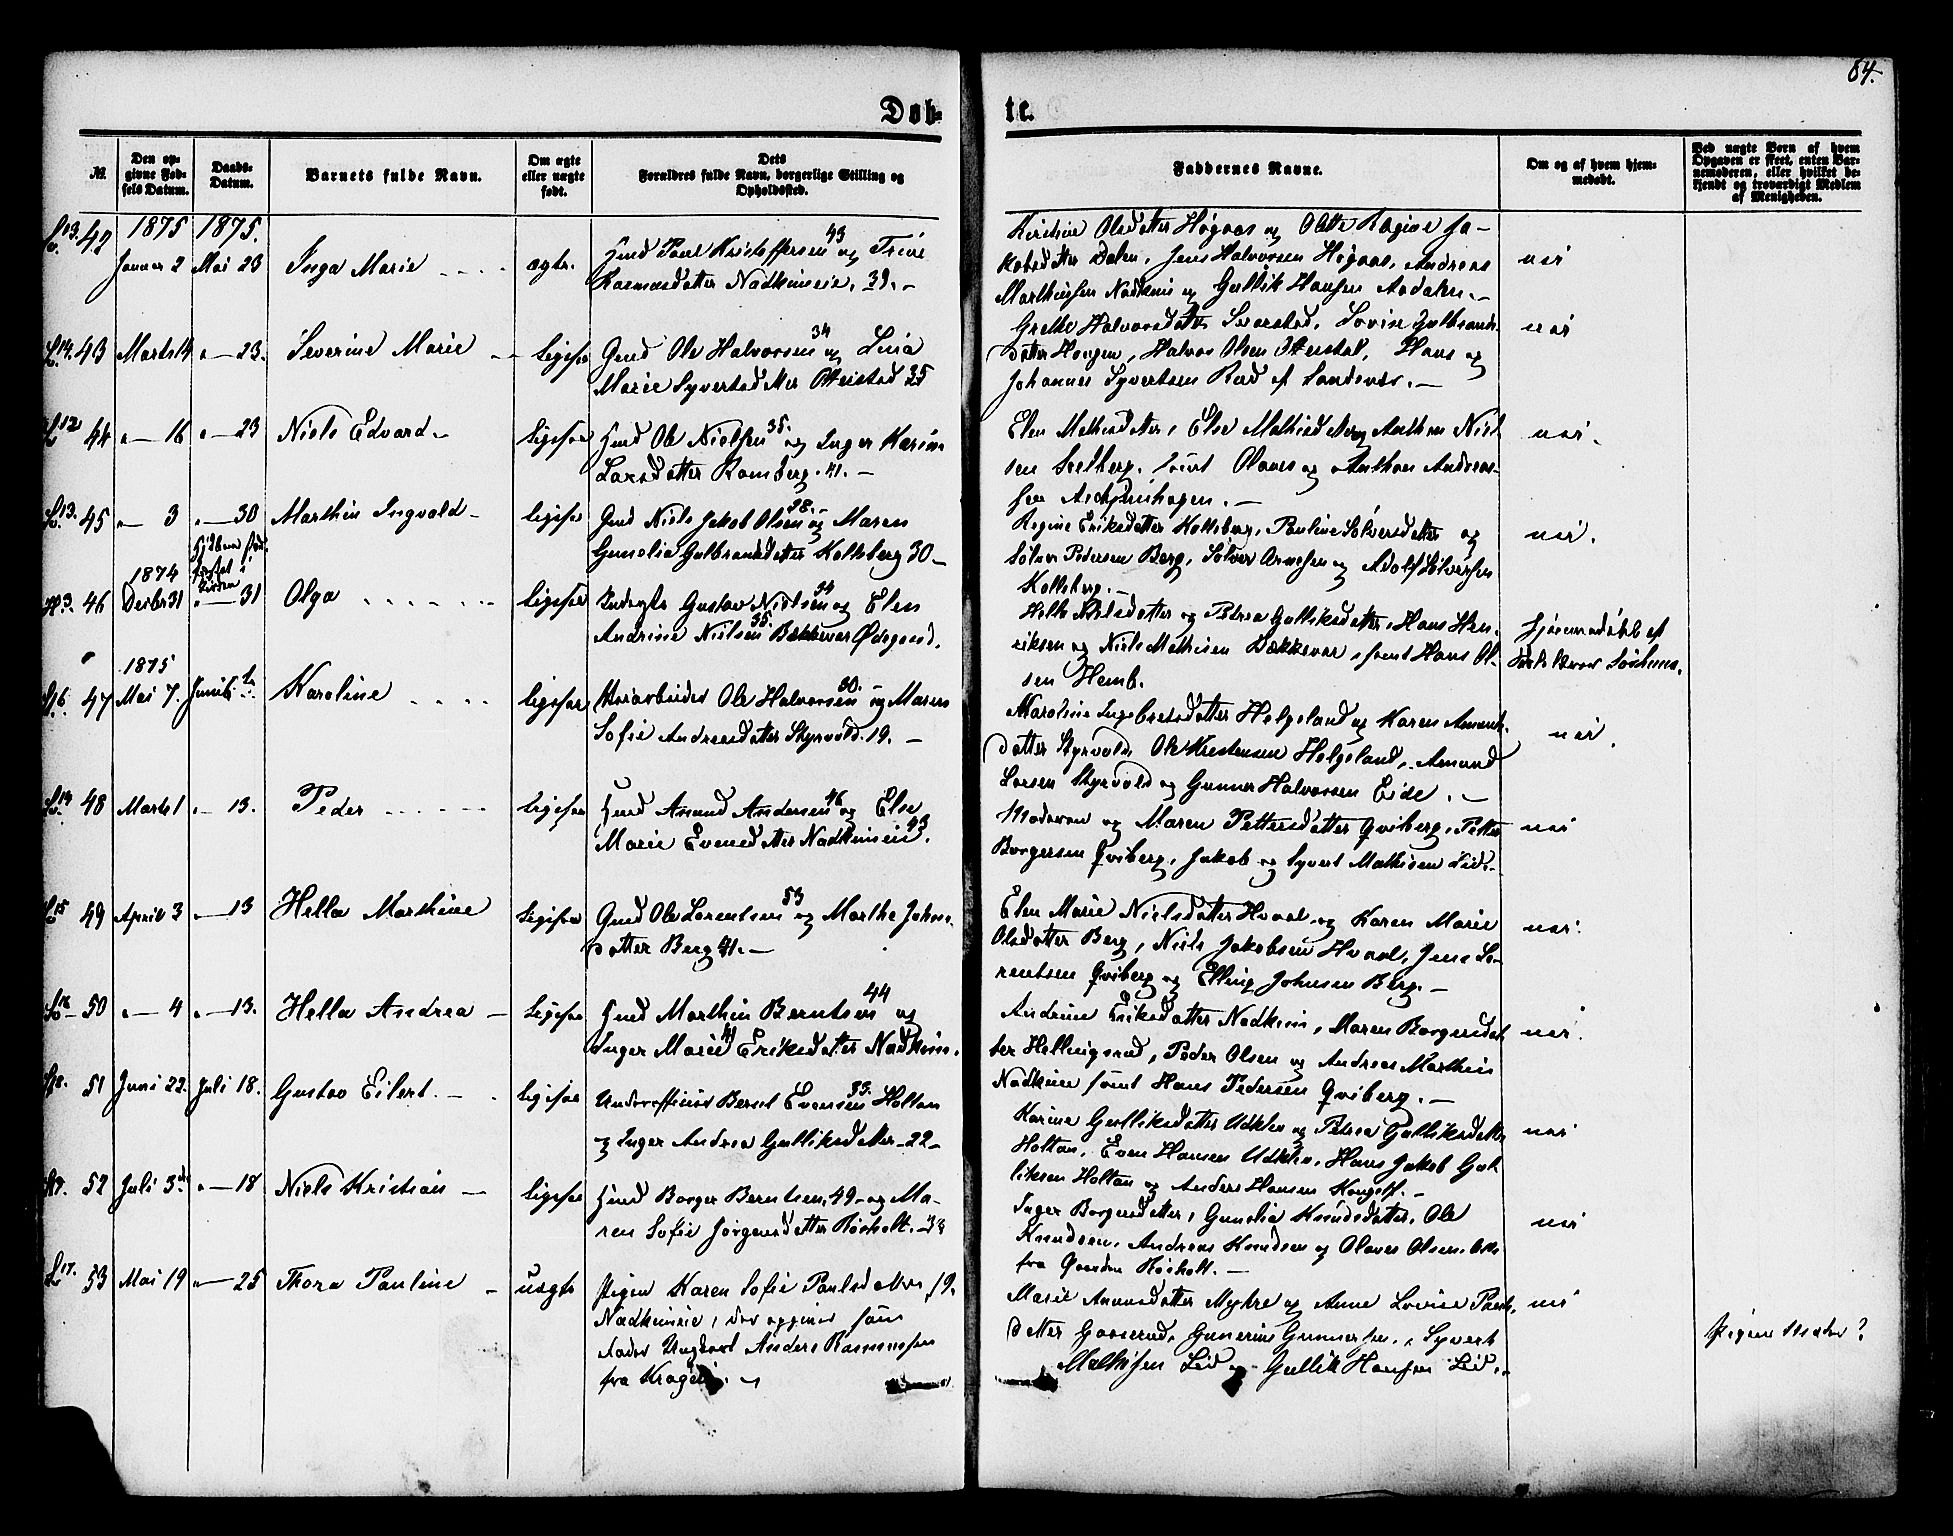 84.
Døb-
te.
№
Den op-
givne Fød-
sels Datum.
Daabs-
Datum.
Barnets fulde Navn.
Om ægte
eller uægte
født.
Dets
Forældres fulde Navn, borgerlige Stilling og
Opholdssted.
Faddernes Navne.
Om og af hvem hjem-
medøbt.
Ved uægte Børn af hvem
Opgaven er skeet, enten Bar-
nemoderen, eller hvilket be-
kjendt og troværdigt Medlem
af Menigheden.
42
1875
Januar 2
1875.
Mai 23
Inga Marie
ægte.
Gmd Poul Kristoffersen 43 og Trine
Rasmusdatter Nadkimeie. 39.-
Kirstine Olsdatter Høgaas og Olette Regine Ja-
kobsdatter Dalen, Jens Halvorsen Høgaas, Andreas
Marthinsen Nadkim og Gullik Hansen Aadalen.-
nei
43
Marts 14
" — 23.
Severine Marie
ligesaa
Gmd Ole Halvorsen 34 og Lina
Marie Syvertsdatter Otterstad 35
Grethe Halvorsdatter Sverstad, Lovise Gulbrands-
datter Haugen, Halvor Olsen Otterstad, Hans og
Johannes Syvertsen Rød af Sandesver.-
nei
44
" — 16
" — 23
Niels Edvard
ligesaa
Gmd Ole Nielsen 35. og Inger Karine
Larsdatter Romberg. 41.-
Elen Mathisdatter, Else Mathisdatter og Anthon Niel-
sen Solberg, samt Olaves og Anthon Andreas-
sen
nei.
45
" — 3
" — 30
Marthin Ingvald
ligesaa
Gmd Niels Jakob Olsen 28. og Maren
Gunelia Gulbrandsdatter Kolsberg 30-
Regine Eriksdatter Kolsberg, Pauline Sølversdatter og
Sølver Pedersen Berg, Sølver Arnesen og Adolf Sølversen
Kolsberg.-
nei.
46
1874
Decbr 31
" — 31
Olga
ligesaa
Inderste Gustav Nielsen 34 og Elen
Andrine Nielsen 35. Bækkevar Ødegaard.
Helle Nielsdatter og Petrea Gulliksdatter, Hans Hen-
riksen og Niels Mathisen Bækkevar, samt Hans Ol-
sen Hemb.
hjemmedøbt af
47
1875
Mai 7.
Juni 6te
Karoline
ligesaa
Ole Halvorsen 30. og Maren
Sofie Andreasdatter Styrvold. 19.-
Karoline Ingebretsdatter Helgeland og Karen Amunds-
datter Styrvold, Ole Kristensen Helgeland, Amund
Larsen Styrvold og Gunner Halvorsen Eide.-
nei.
48
Marts 1
" — 13.
Peder
ligesaa
Gmd Amund Andersen 46 og Else
Marie Evensdatter Nadkimeie 43.
Moderen og Maren Pettersdatter Qviberg, Petter
Borgersen Qviberg, Jakob og Syvert Mathisen Lid.-
nei
49
April 3
" — 13
Hella Marthine
ligesaa
Gmd Ole Lorentsen 53 og Marthe Johns-
datter Berg 41.-
Elen Marie Nielsdatter Hvaal og Karen Marie
Olsdatter Berg, Niels Jakobsen Hvaal, Jens Lo-
rentsen Qviberg og Elling Johnsen Berg.-
nei.
50
" — 4
" — 13.
Hella Andrea
ligesaa
Gmd Marthin Berntsen 44 og
Inger Marie 41 Eriksdatter Nadkim.
Andrine Eriksdatter Nadkim, Maren Borgersdat-
ter Hellingsrød, Peder Olsen og Andreas Marthin
Nadkim samt Hans Pedersen Qviberg.-
nei.
51
Juni 22.
Juli 18.
Gustav Eilert.
ligesaa
Underofficier Bernt Evensen 33. Holtan
og Inger Andrea Gulliksdatter 22-
Karine Gulliksdatter Udklev og Petrea Gulliksdatter
Holtan, Even Hansen Udklev, Hans Jakob Gul-
liksen Holtan og Anders Hansen
nei
52
Juli 3die
" — 18
Niels Kristian
ligesaa
Gmd Borger Berntsen, 49- og Ma-
ren Sofie Jørgensdatter Røsholt.
Inger Borgersdatter, Gunelia Knudsdatter, Ole
Knudsen, Andreas Knudsen og Olaves Olsen,
fra Gaarden Røsholt.-
nei
53
Mai 19
" — 25
Thora Pauline
uægte
Pigen Karen Sofie Paulsdatter 19.
Nadkimeie, der opgiver som
Fader Ungkarl Anders Rasmussen
fra Kragerø.-
Marie Amundsdatter Myhre og Anne Lovise Pauls-
datter Gaaserud, Gunerius Gunnersen, Syvert
Mathisen Lid og Gullik Hansen Lid.-
nei
Pigens Moder?